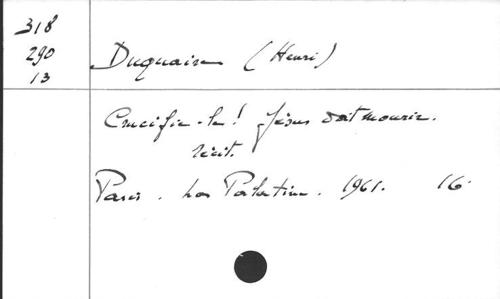 318
290
13
Duquaire (Henri)
Crucifie-le! Jésus doit mourir.
récit.
Paris. La Palatine. 1961. 16